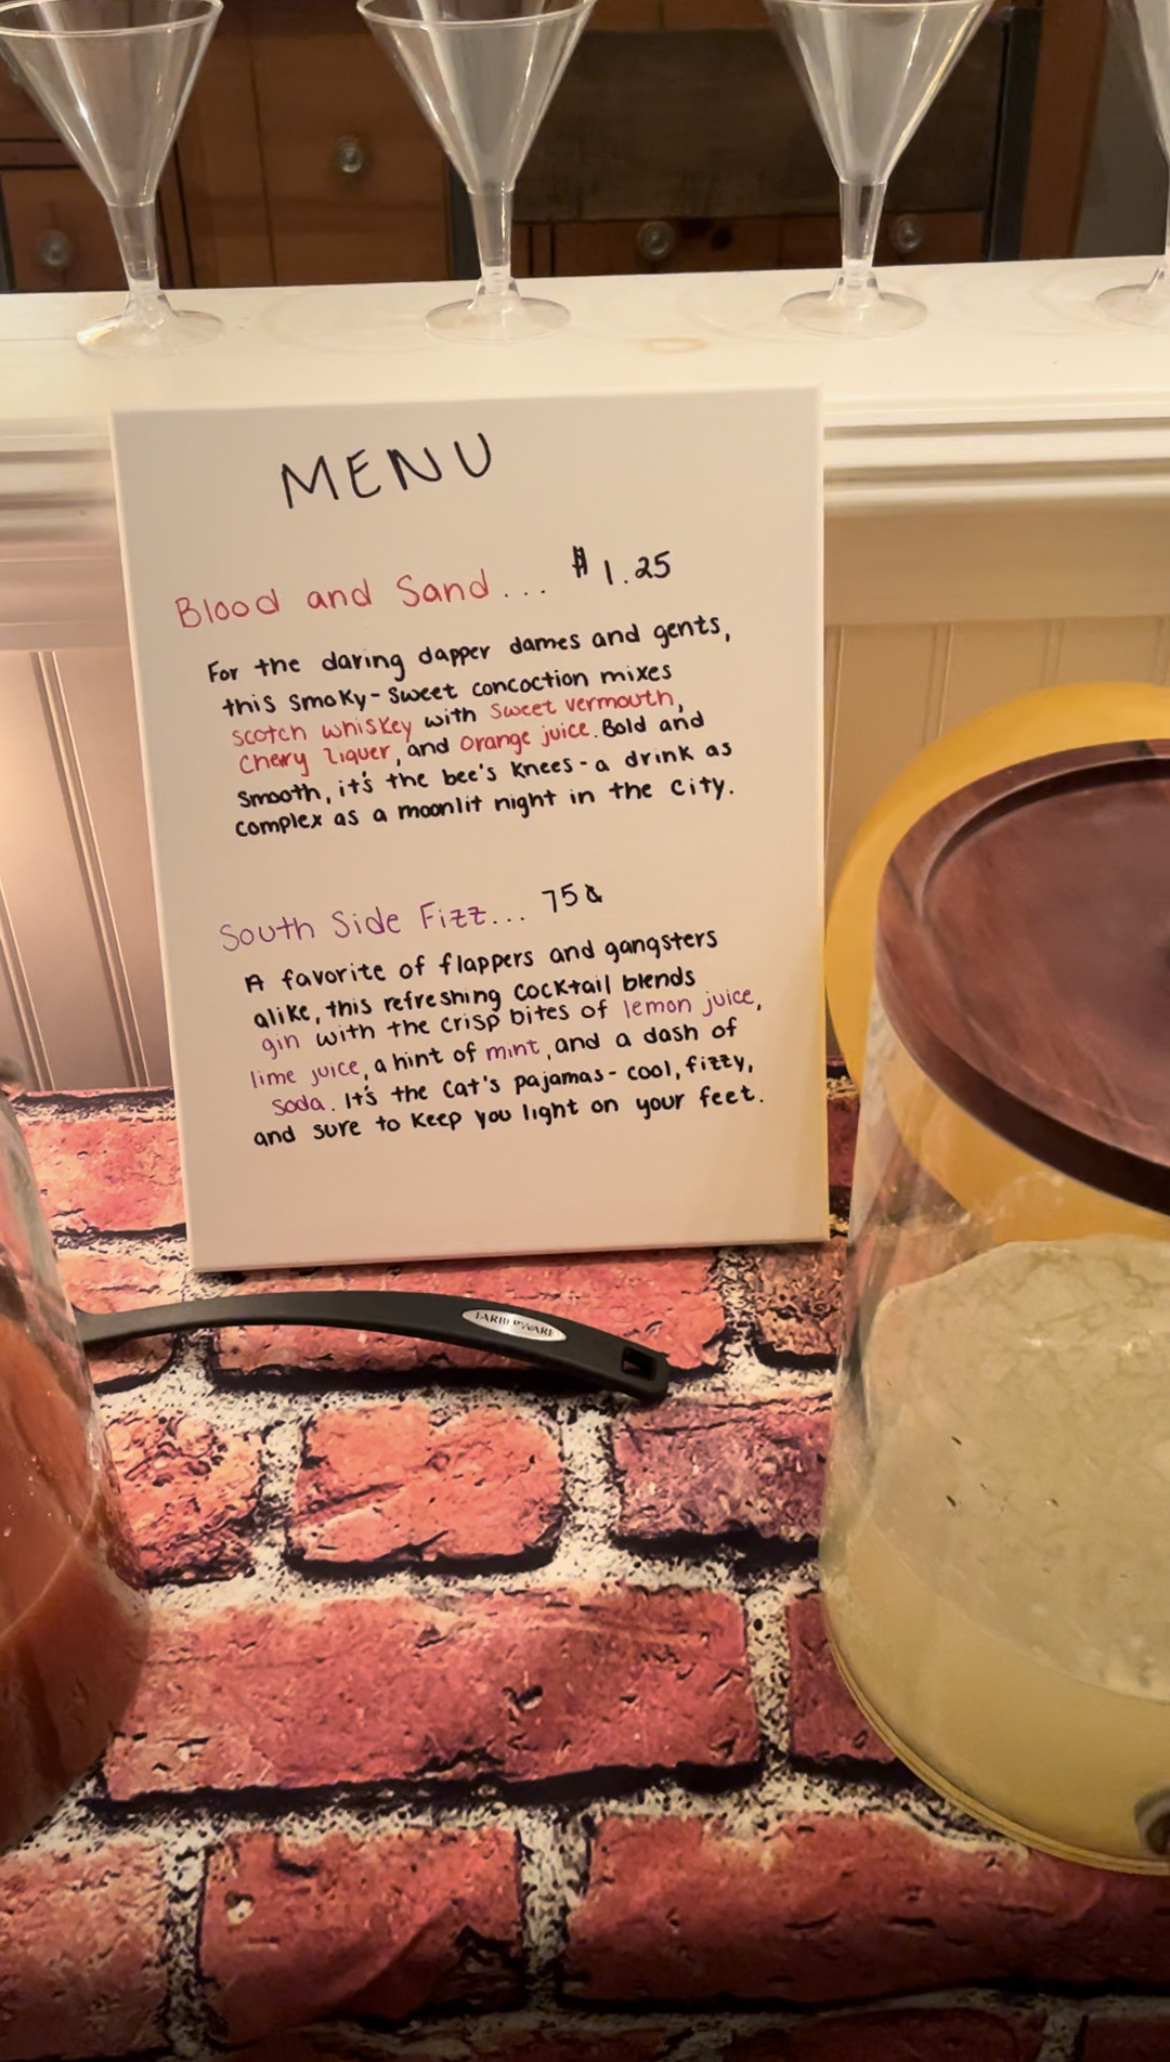 MENU
Blood and Sand... $1.25
For the daring dapper dames and gents,
this smoky-sweet concoction mixes
scotch whiskey with sweet vermouth,
cherry liquer, and orange juice. Bold and
smooth, it's the bee's knees-a drink as
complex as a moonlit night in the city.
South Side Fizz... 75¢
A favorite of flappers and gangsters
alike, this refreshing cocktail blends
gin with the crisp bites of lemon juice,
lime juice, a hint of mint, and a dash of
soda. It's the cat's pajamas-cool, fizzy,
and sure to keep you light on your feet.
FARBERWARE